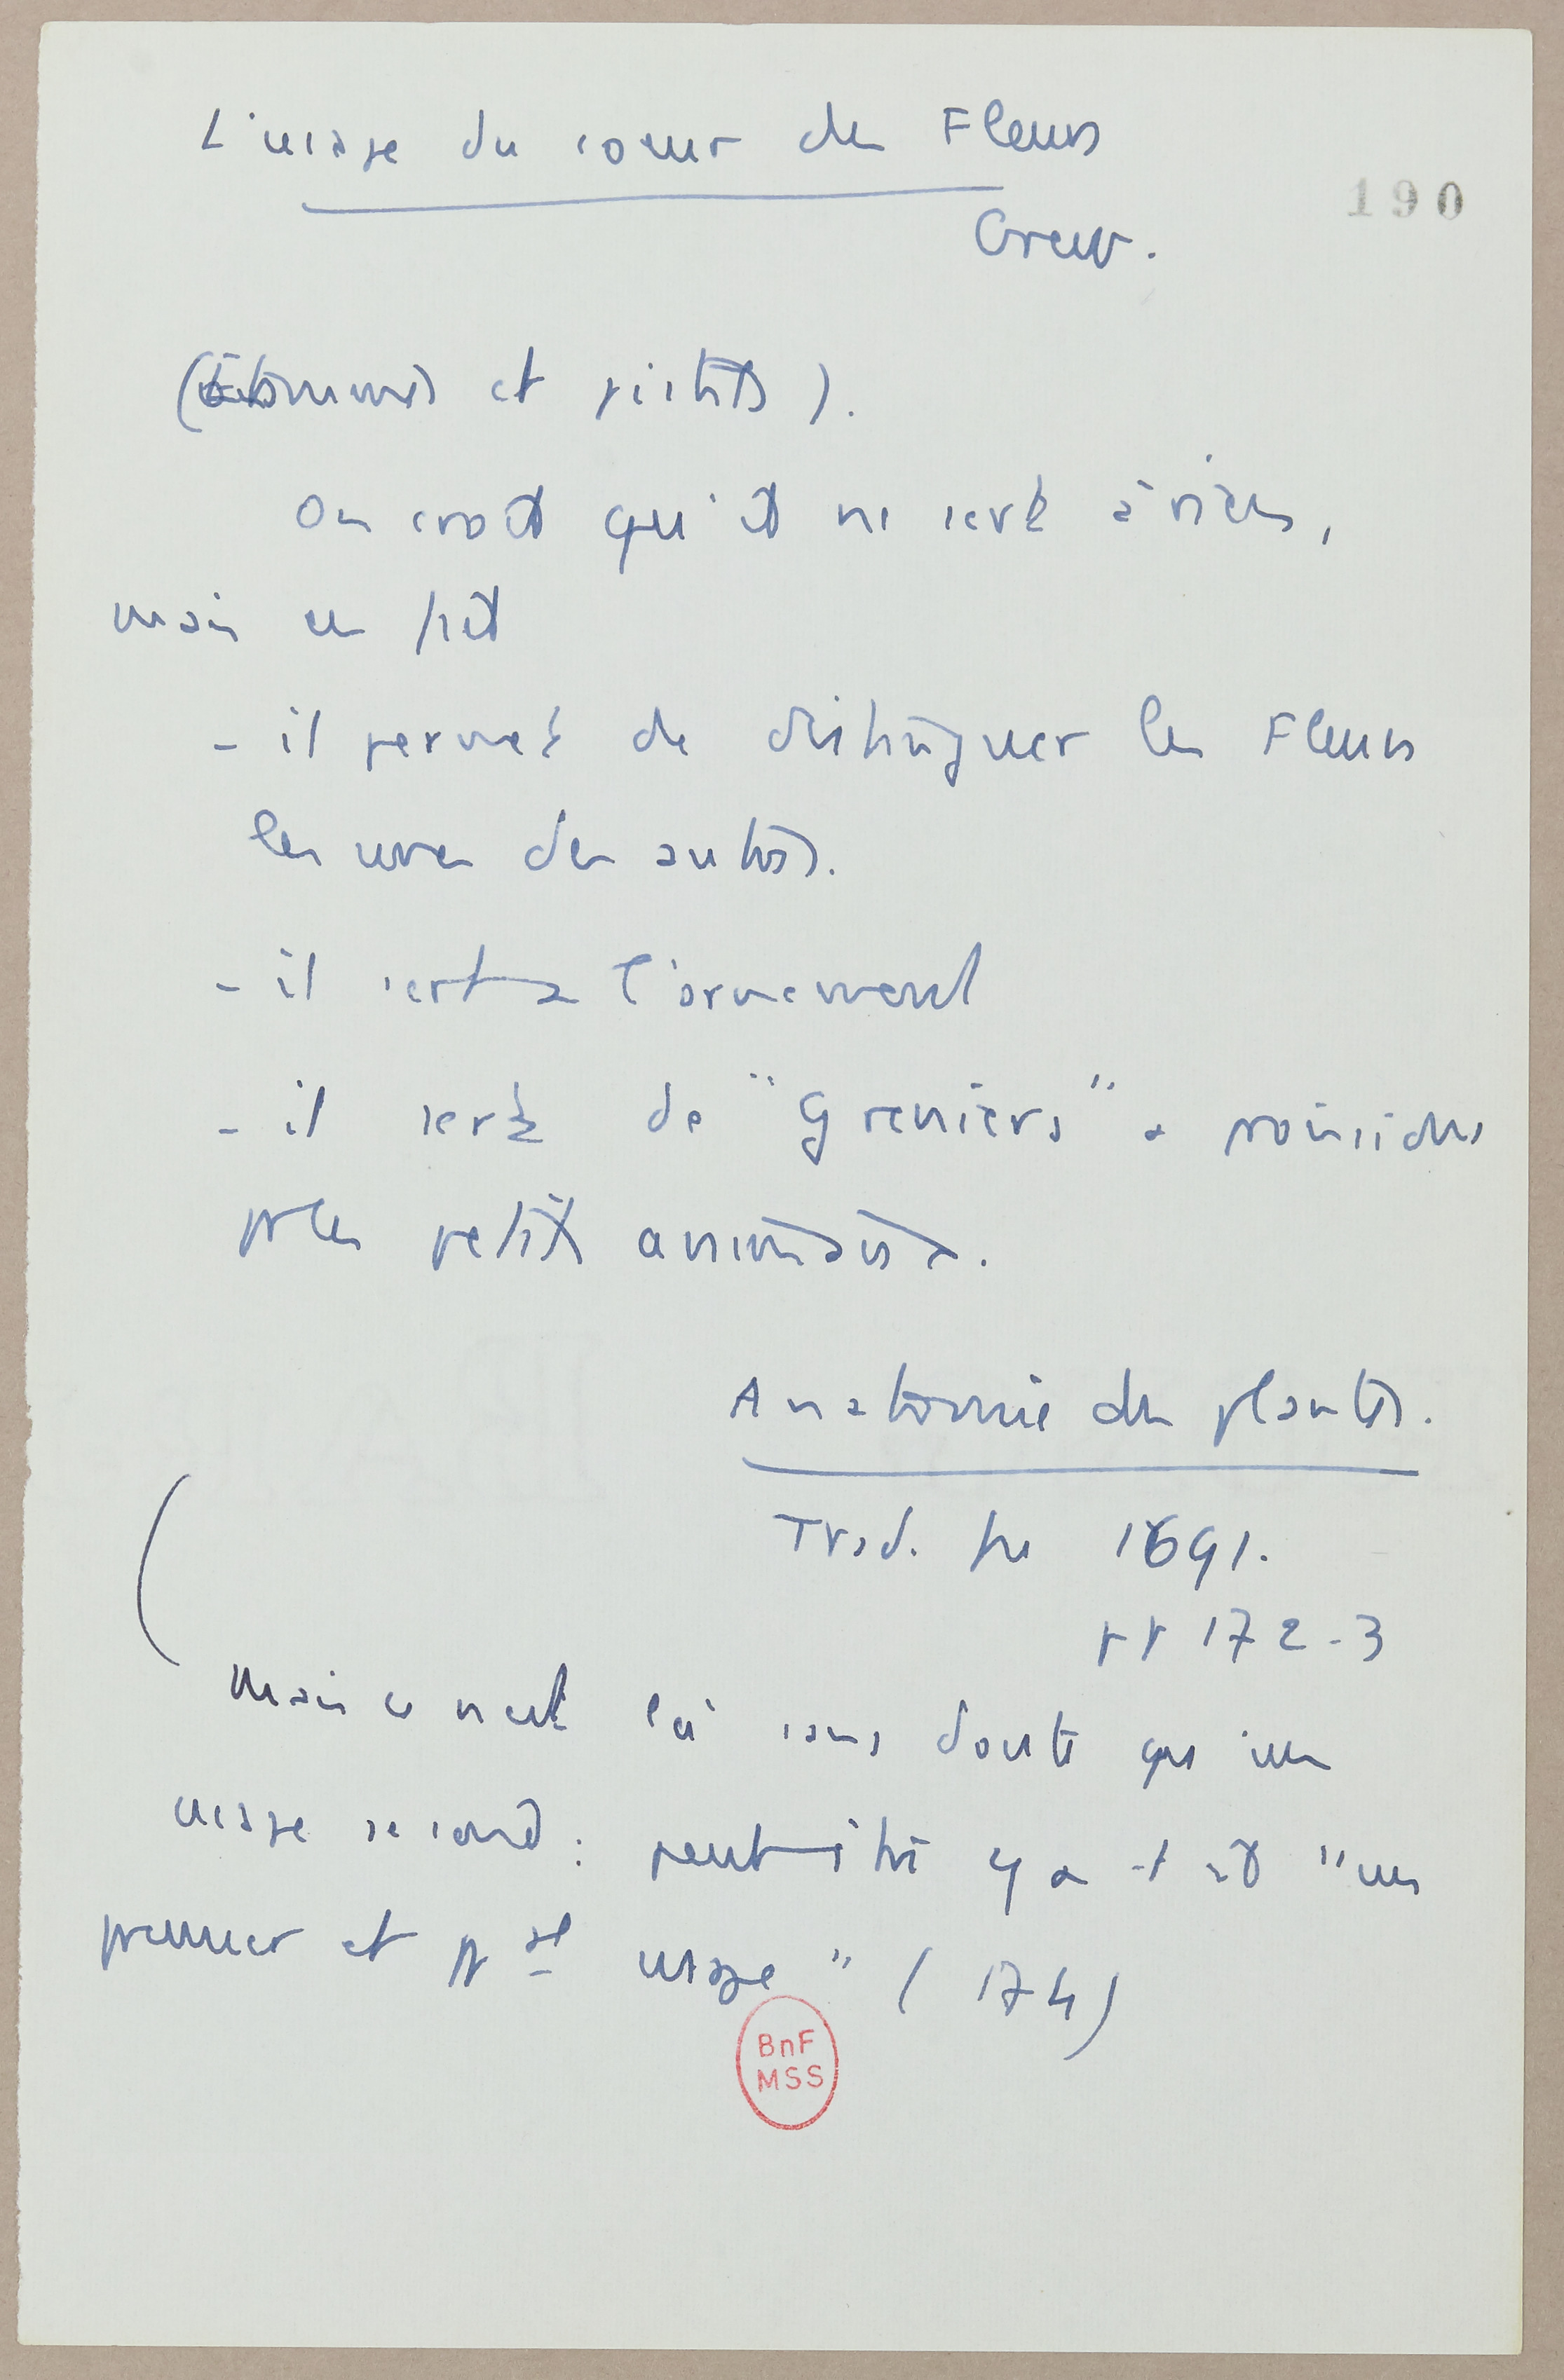 L'usage du coeur des Fleurs
190
Grew.
(étamines et pistils).
On croit qu'il ne sert à rien,
mais en fait
- il permet de distinguer les Fleurs
les unes des autres.
- il sert à l'ornement
- il sert de "Greniers" à
pr les petits animaux.
Anatomie des plantes.
Trad. fse 1691.
pp 172-3
Mais ce n'est là sans doute qu'un
usage second : peut-être y a-t-il "un
premier et pal usage" (174)
BnF
MSS